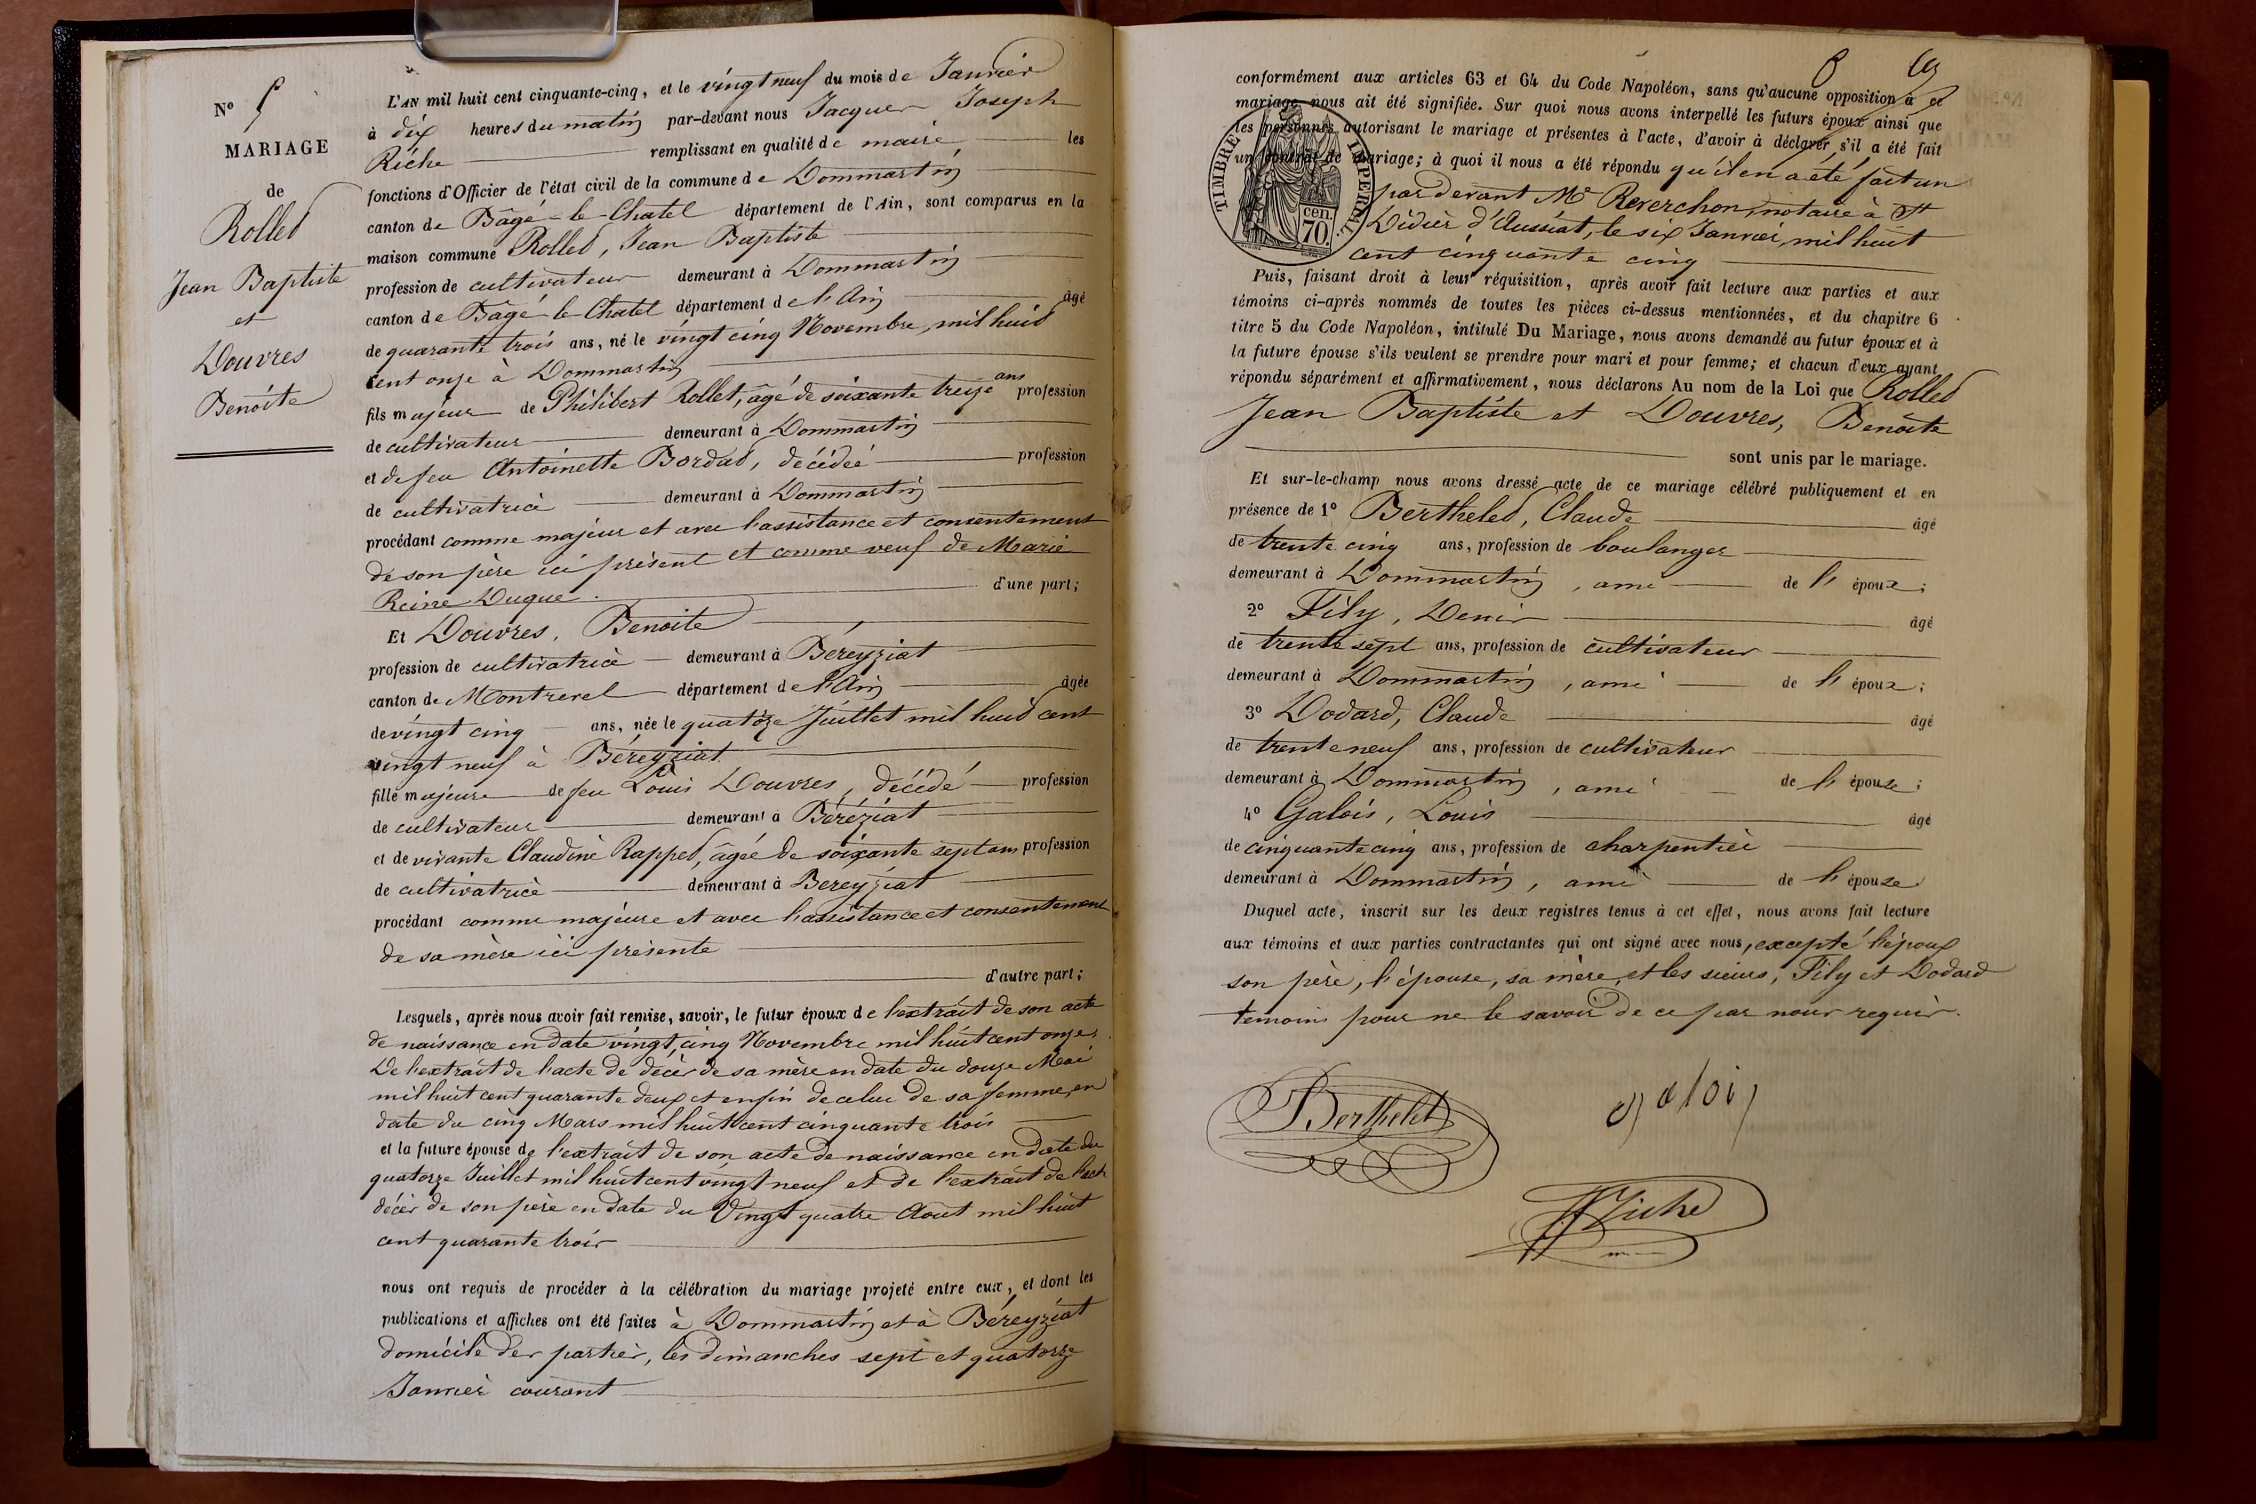 N° 5
MARIAGE
de
Rollet
Jean Baptiste
et
Douvres
Benoite
L'AN mil huit cent cinquante-cinq, et le vingt neuf du mois de Janvier
à dix heures du matin par-devant nous Jacques Joseph
Riche remplissant en qualité de maire les
fonctions d'Officier de l'état civil de la commune de Dommartin
canton de Bâgé-le-Chatel département de l'Ain, sont comparus en la
maison commune Rollet, Jean Baptiste
profession de cultivateur demeurant à Dommartin
canton de Bâgé-le-Chatel département de l'Ain âgé
de quarante trois ans, né le vingt cinq Novembre mil huit
cent onze à Dommartin
fils majeur de Philibert Rollet, âgé de soixante treize ans profession
de cultivateur demeurant à Dommartin
et de feu Antoinette Bordat, décédée profession
de cultivatrice demeurant à Dommartin
procédant comme majeur et avec l'assistance et consentement
de son père ici présent et comme veuf de Marie
Reine Duque d'une part;
Et Douvres, Benoite
profession de cultivatrice demeurant à Béreyziat
canton de Montrevel département de l'Ain âgée
de vingt cinq ans, née le quatoze Juillet mil huit cent
vingt neuf à Béreyziat
fille majeure de feu Louis Douvres, décédé profession
de cultivateur demeurant à Béréziat
et de vivante Claudine Rappet, âgée de soixante sept ans profession
de cultivatrice demeurant à Bereyziat
procédant comme majeure et avec l'assistance et consentement
de sa mère ici présente
d'autre part;
Lesquels, après nous avoir fait remise, savoir, le futur époux de l'extrait de son acte
de naissance en date vingt cinq Novembre mil huit cent onze,
De l'extrait de l'acte de décès de sa mère en date du douze Mai
mil huit cent quarante deux et enfin de celui de sa femme, en
date du cinq Mars mil huit cent cinquante trois
et la future épouse de l'extrait de son acte de naissance en date du
quatorze Juillet mil huit cent vingt neuf et de l'extrait de l'acte
décès de son père en date du Vingt quatre Aout mil huit
cent quarante trois
nous ont requis de procéder à la célébration du mariage projeté entre eux, et dont les
publications et affiches ont été faites à Dommartin et à Béreyziat
domicile des parties, les dimanches sept et quatorze
Janvier courant
conformément aux articles 63 et 64 du Code Napoléon, sans qu'aucune opposition à ce
mariage nous ait été signifiée. Sur quoi nous avons interpellé les futurs époux ainsi que
les personnes autorisant le mariage et présentes à l'acte, d'avoir à déclarer s'il a été fait
un contrat de mariage; à quoi il nous a été répondu qu'il en a été fait un
par devant Me Reverchon, notaire à St
Didier d'Aussiat, le six Janvier, mil huit
cent cinquante cinq
TIMBRE IMPERIAL
cen. 70.
Puis, faisant droit à leur réquisition, après avoir fait lecture aux parties et aux
témoins ci-après nommés de toutes les pièces ci-dessus mentionnées, et du chapitre 6
titre 5 du Code Napoléon, intitulé Du Mariage, nous avons demandé au futur époux et à
la future épouse s'ils veulent se prendre pour mari et pour femme; et chacun d'eux ayant
répondu séparément et affirmativement, nous déclarons Au nom de la Loi que Rollet
Jean Baptiste et Douvres, Benoite
sont unis par le mariage.
Et sur-le-champ nous avons dressé acte de ce mariage célébré publiquement et en
présence de 1° Berthelet, Claude âgé
de trente cinq ans, profession de boulanger
demeurant à Dommartin, ami de l' époux;
2° Fily, Denis âgé
de trente sept ans, profession de cultivateur
demeurant à Dommartin, ami de l' époux;
3° Dodard, Claude âgé
de trente neuf ans, profession de cultivateur
demeurant à Dommartin, ami de l' épouse;
4° Galois, Louis âgé
de cinquante cinq ans, profession de charpentier
demeurant à Dommartin, ami de l' épouse
Duquel acte, inscrit sur les deux registres tenus à cet effet, nous avons fait lecture
aux témoins et aux parties contractantes qui ont signé avec nous, excepté l'époux
son père, l'épouse, sa mère, et les sieurs, Fily et Dodard
temoins pour ne le savoir de ce par nous requis.
Berthelet
galois
JJ Riche